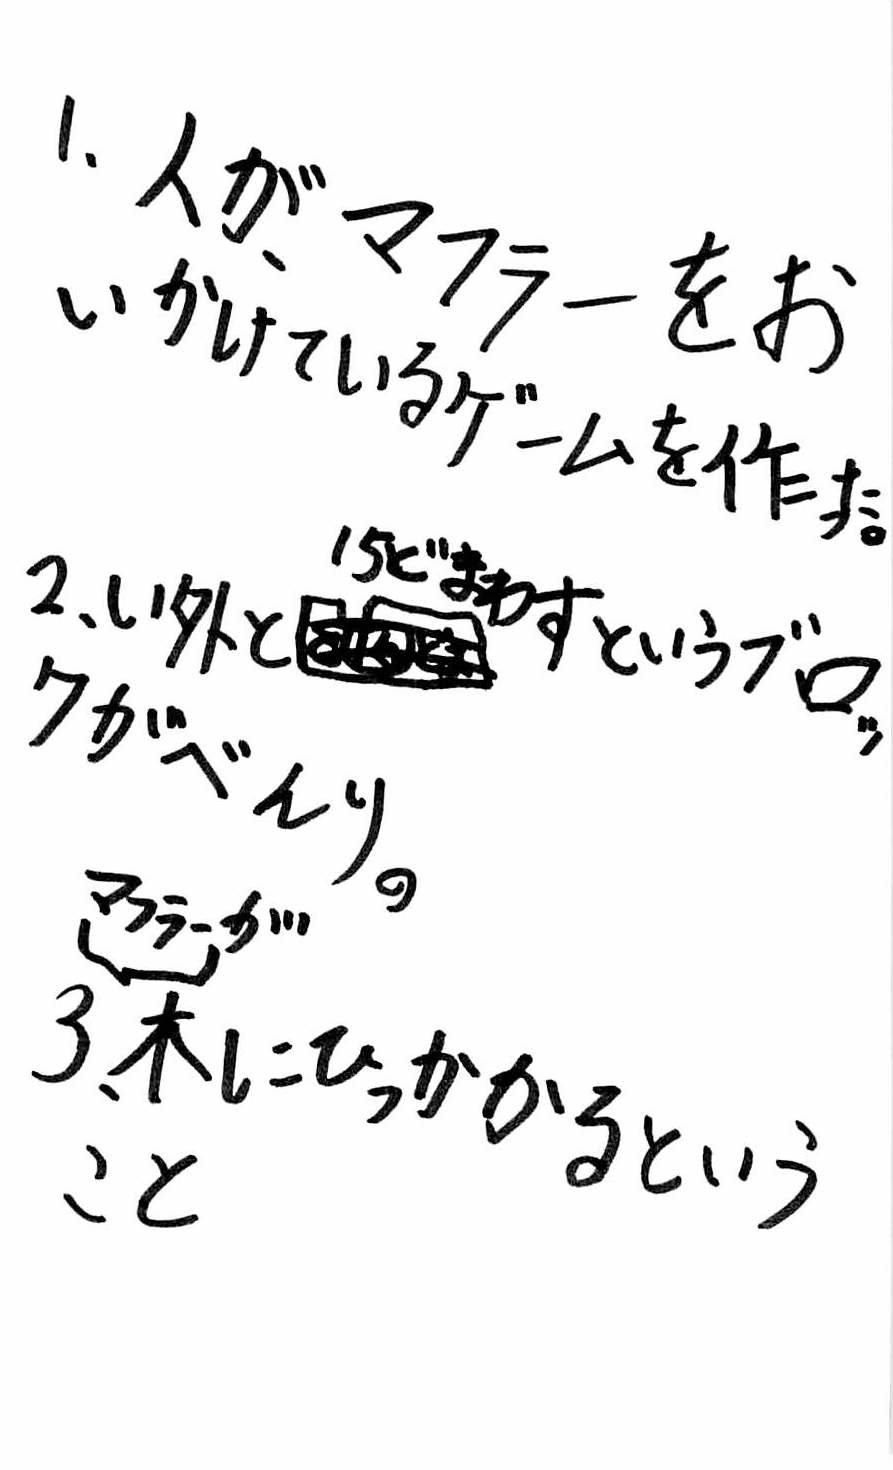 1、人が、マフラーをお
いかけているゲームを作た。
2、い外と15どまわすというブロッ
クがべんり。
マフラーが
3、木にひっかかるという
こと